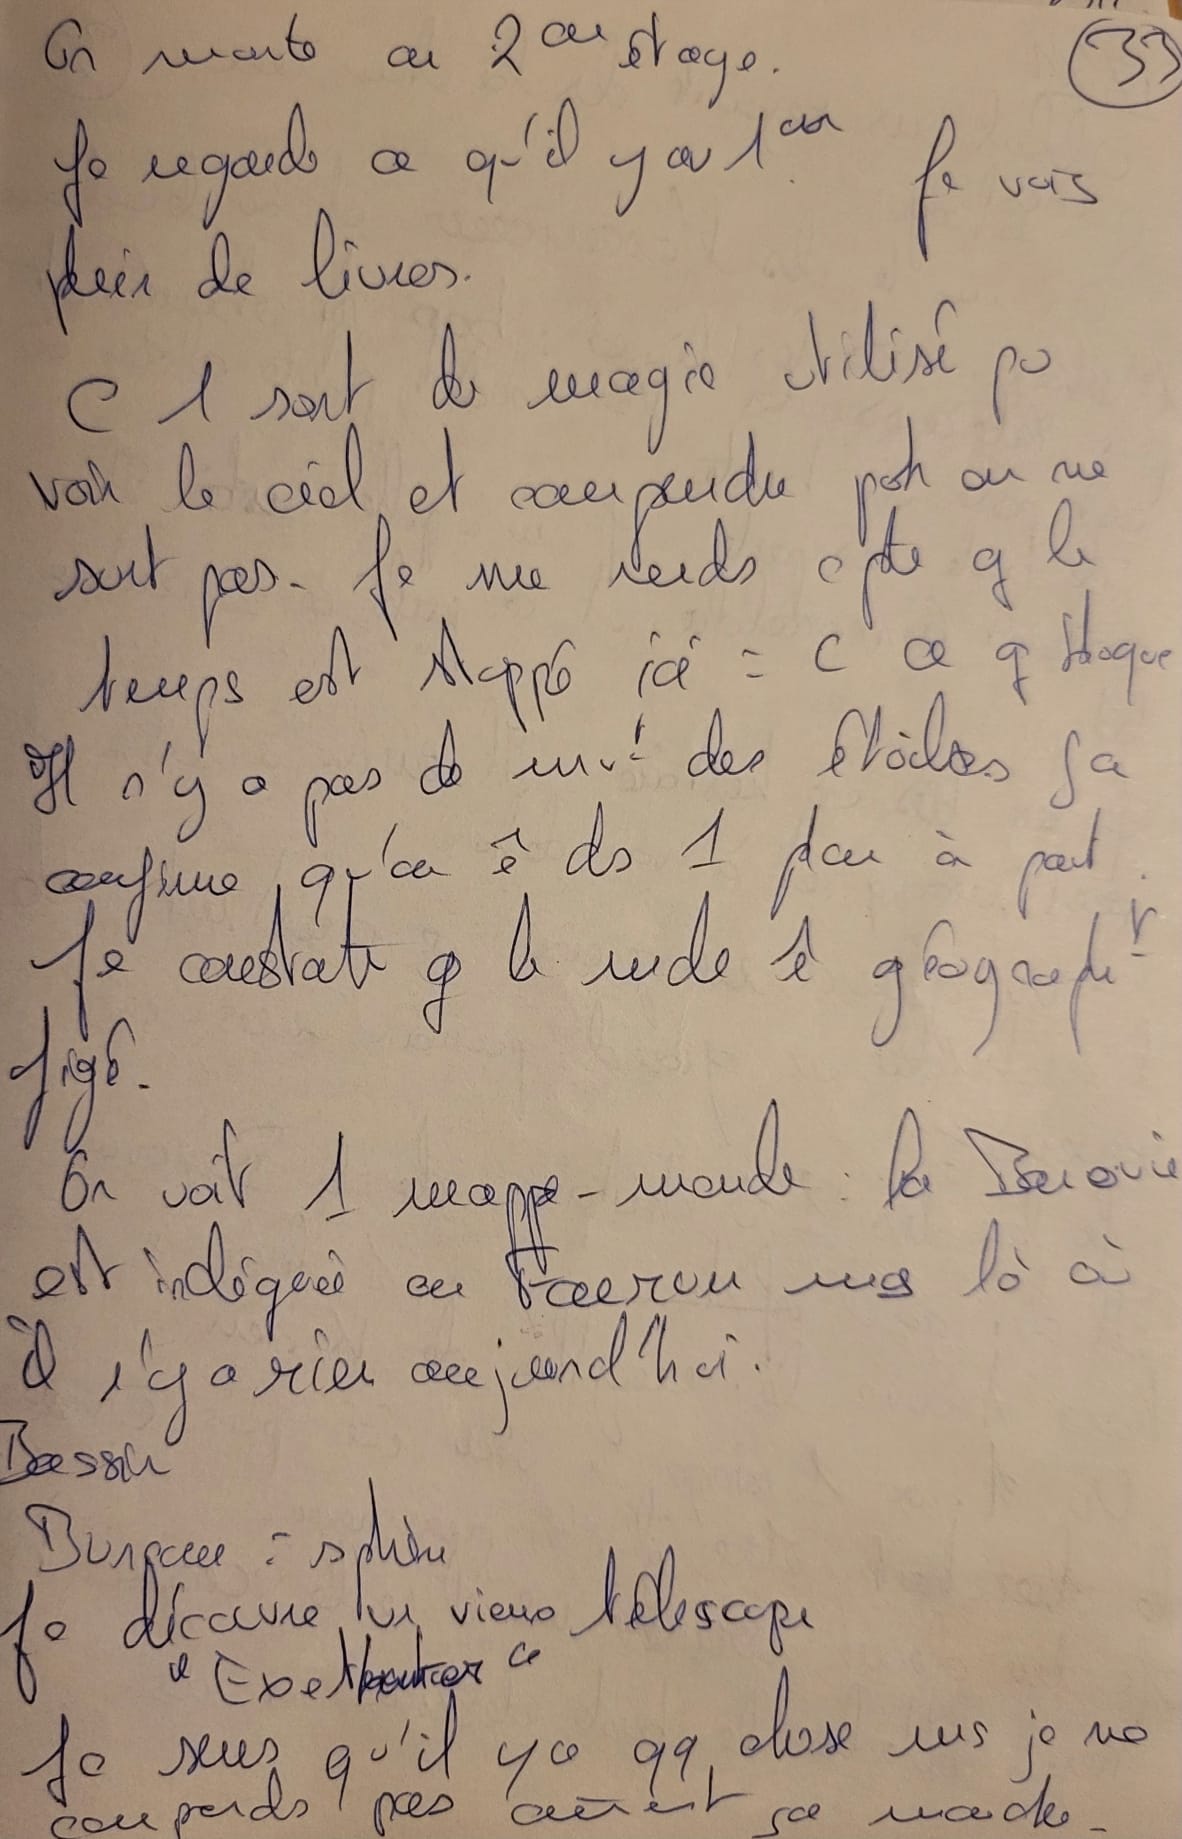 On monte au 2em étage.
33
Je regarde ce qu'il y a au 1er. Je vois
plein de livres.
C 1 sort de magie utilisé po
voir le ciel et comprendre pq on ne
sort pas. Je me rends cpte q le
temps est stoppé ici = C ce q
Il n'y a pas de mvt des étoiles ça
confirme qu'on ê ds 1 plan à part.
Je constate q le mde ê géographt
figé.
On voit 1 mappe-monde : la Barovie
est indiquée au Faerun ms là où
il n'y a rien aujourd'hui.
Bassin
Bureau : sphère
Je découvre un vieux télescope
Je sens qu'il y a qq chose ms je ne
comprends pas comment ça marche.